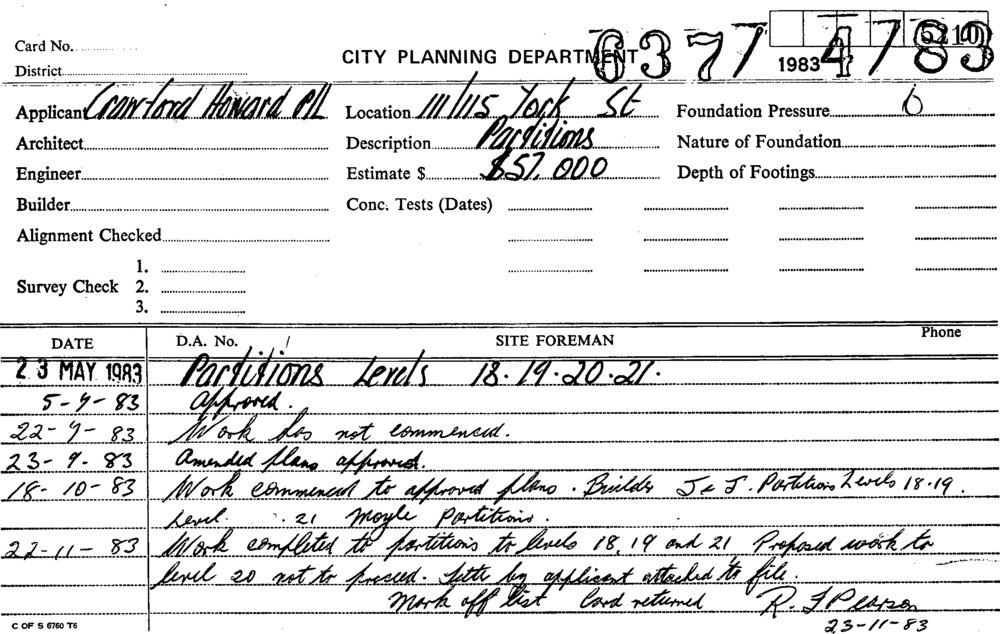 Card No.
CITY PLANNING DEPARTMENT 6377 1983 4783
District
Applicant Crawford Howard P/L Location 111/115 York St Foundation Pressure 6
Architect Description Partitions Nature of Foundation
Engineer Estimate $ $57,000 Depth of Footings
Builder Conc. Tests (Dates)
Alignment Checked
1.
Survey Check 2.
3.
DATE D.A. No. SITE FOREMAN Phone
23 MAY 1983 Partitions Levels 18.19.20.21.
5-9-83 Approved.
22-9-83 Work has not commenced.
23-9-83 Amended plans approved.
18-10-83 Work commenced to approved plans. Builder J & J. Partitions Levels 18.19.
Level 21 Moyle Partitions.
22-11-83 Work completed to partitions to levels 18, 19 and 21. Proposed work to
level 20 not to proceed. by applicant attached to file.
Mark off list Card returned R. J Pearson
23-11-83
C OF S 6760 T6